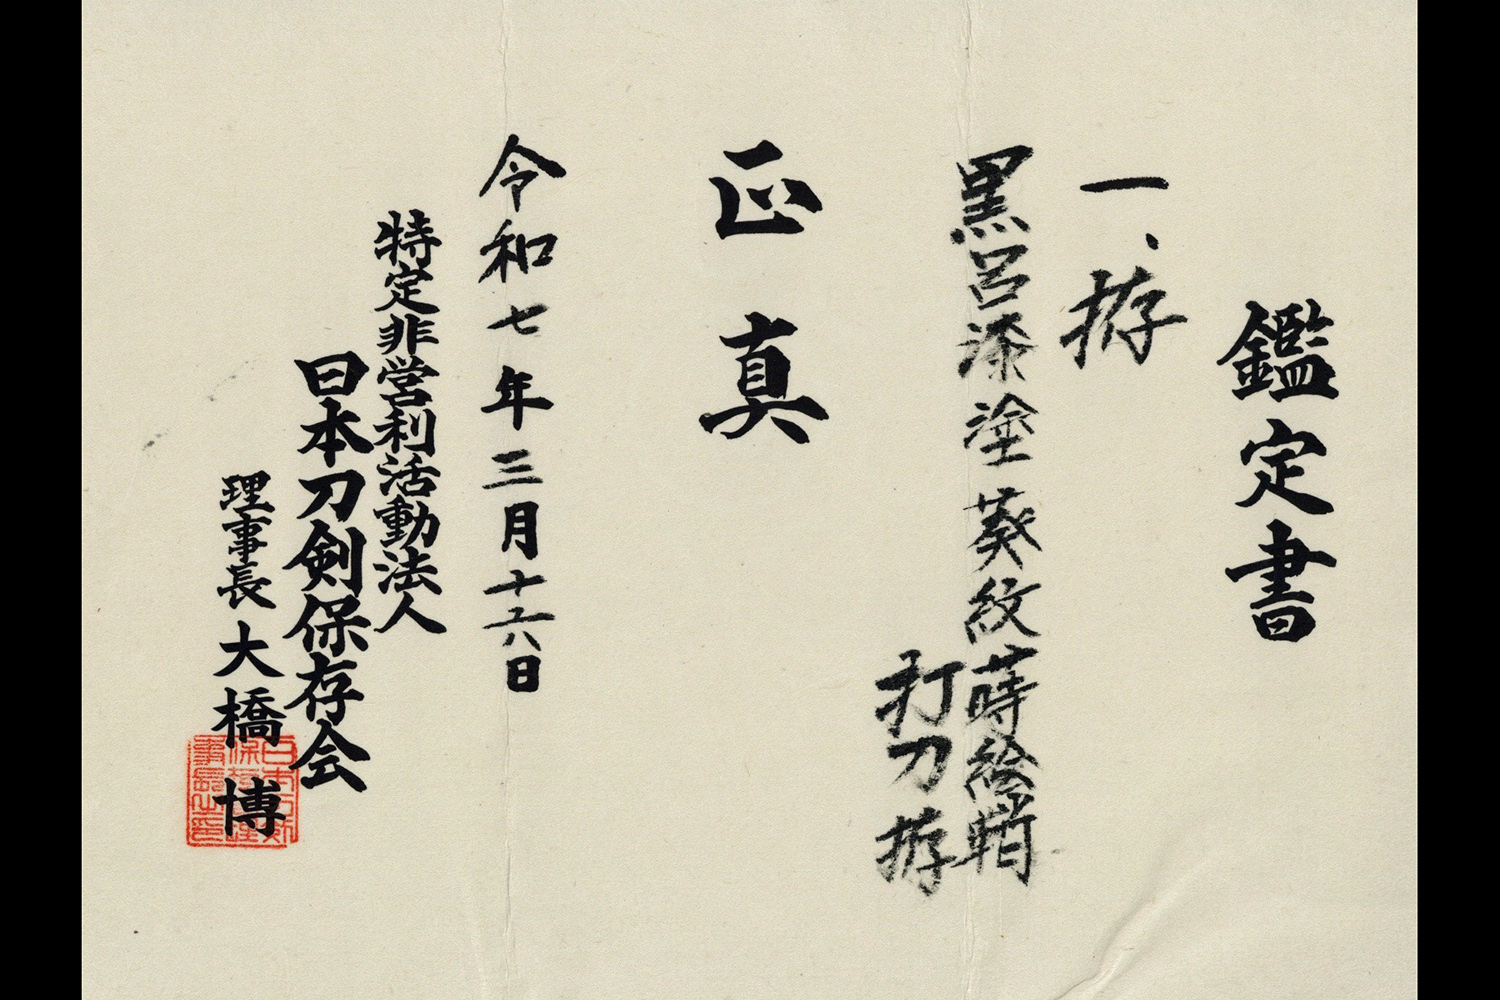 鑑定書
一、拵
黒呂漆塗葵紋蒔絵鞘
打刀拵
正真
令和七年三月十六日
特定非営利活動法人
日本刀剣保存会
理事長 大橋 博